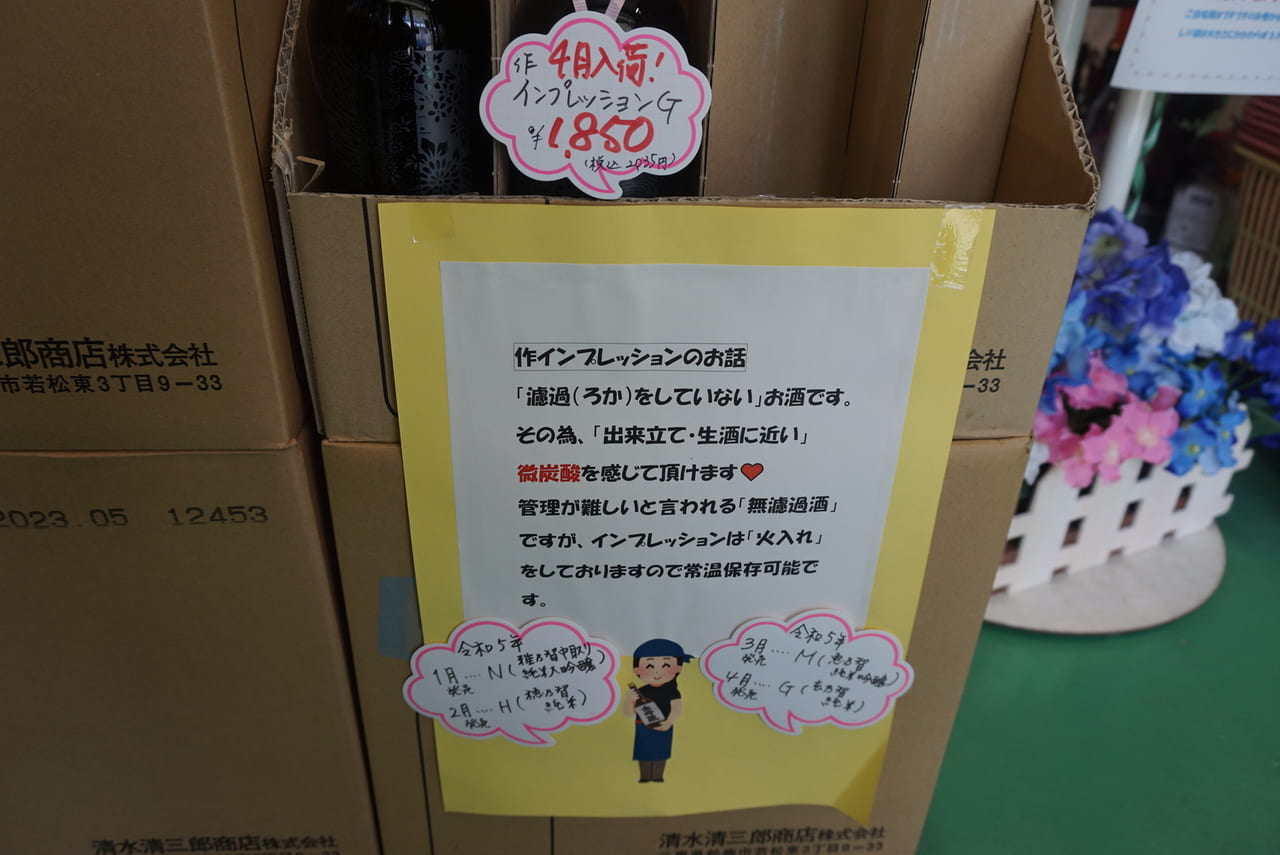 作 4月入荷!
インプレッションG
¥1,850
(税込 2035円)
郎商店株式会社
市若松東3丁目9-33
会社
-33
2023.05 12453
作インプレッションのお話
「濾過(ろか)をしていない」お酒です。
その為、「出来立て・生酒に近い」
微炭酸を感じて頂けます♥
管理が難しいと言われる「無濾過酒」
ですが、インプレッションは「火入れ」
をしておりますので常温保存可能で
す。
令和5年
1月発売 .... N(雅乃智中取り純米大吟醸)
2月発売 .... H(穂乃智純米)
令和5年
3月発売 .... M(恵乃智純米吟醸)
4月発売 .... G(玄乃智純米)
清水清三郎商店株式会社
清水清三郎商店株式会社
三重県鈴鹿市若松東3丁目9-33